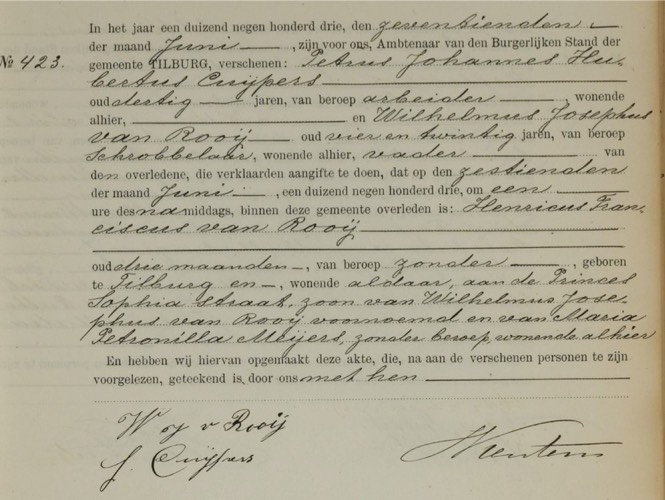 In het jaar een duizend negen honderd drie, den zeventienden
der maand Juni, zijn voor ons, Ambtenaar van den Burgerlijken Stand der
No 423. gemeente TILBURG, verschenen: Petrus Johannes Hu-
bertus Cuijpers
oud dertig jaren, van beroep arbeider, wonende
alhier, en Wilhelmus Josephus
van Rooij oud vier en twintig jaren, van beroep
Schrobbelaar, wonende alhier, vader van
den overledene, die verklaarden aangifte te doen, dat op den zestienden
der maand Juni, een duizend negen honderd drie, om een
ure des namiddags, binnen deze gemeente overleden is: Henricus Fran-
ciscus van Rooij
oud drie maanden, van beroep zonder, geboren
te Tilburg en, wonende aldaar, aan de Princes
Sophia straat, zoon van Wilhelmus Jose-
phus van Rooij voornoemd en van Maria
Petronilla Meijers, zonder beroep, wonende alhier
En hebben wij hiervan opgemaakt deze akte, die, na aan de verschenen personen te zijn
voorgelezen, geteekend is door ons met hen
W v Rooij
Cuijpers